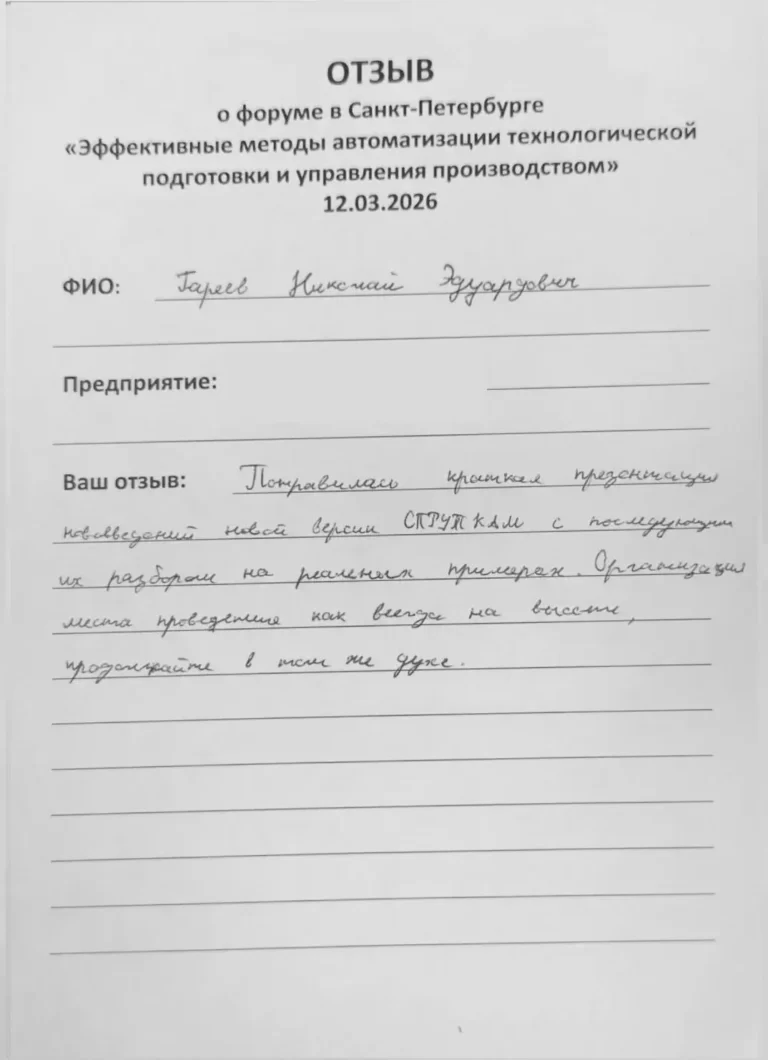 ОТЗЫВ
о форуме в Санкт-Петербурге
«Эффективные методы автоматизации технологической
подготовки и управления производством»
12.03.2026
ФИО: Гареев Николай Эдуардович
Предприятие:
Ваш отзыв: Понравилась краткая презентация
нововведений новой версии СПРУТКАМ с последующим
их разбором на реальных примерах. Организация
места проведения как всегда на высоте,
продолжайте в том же духе.